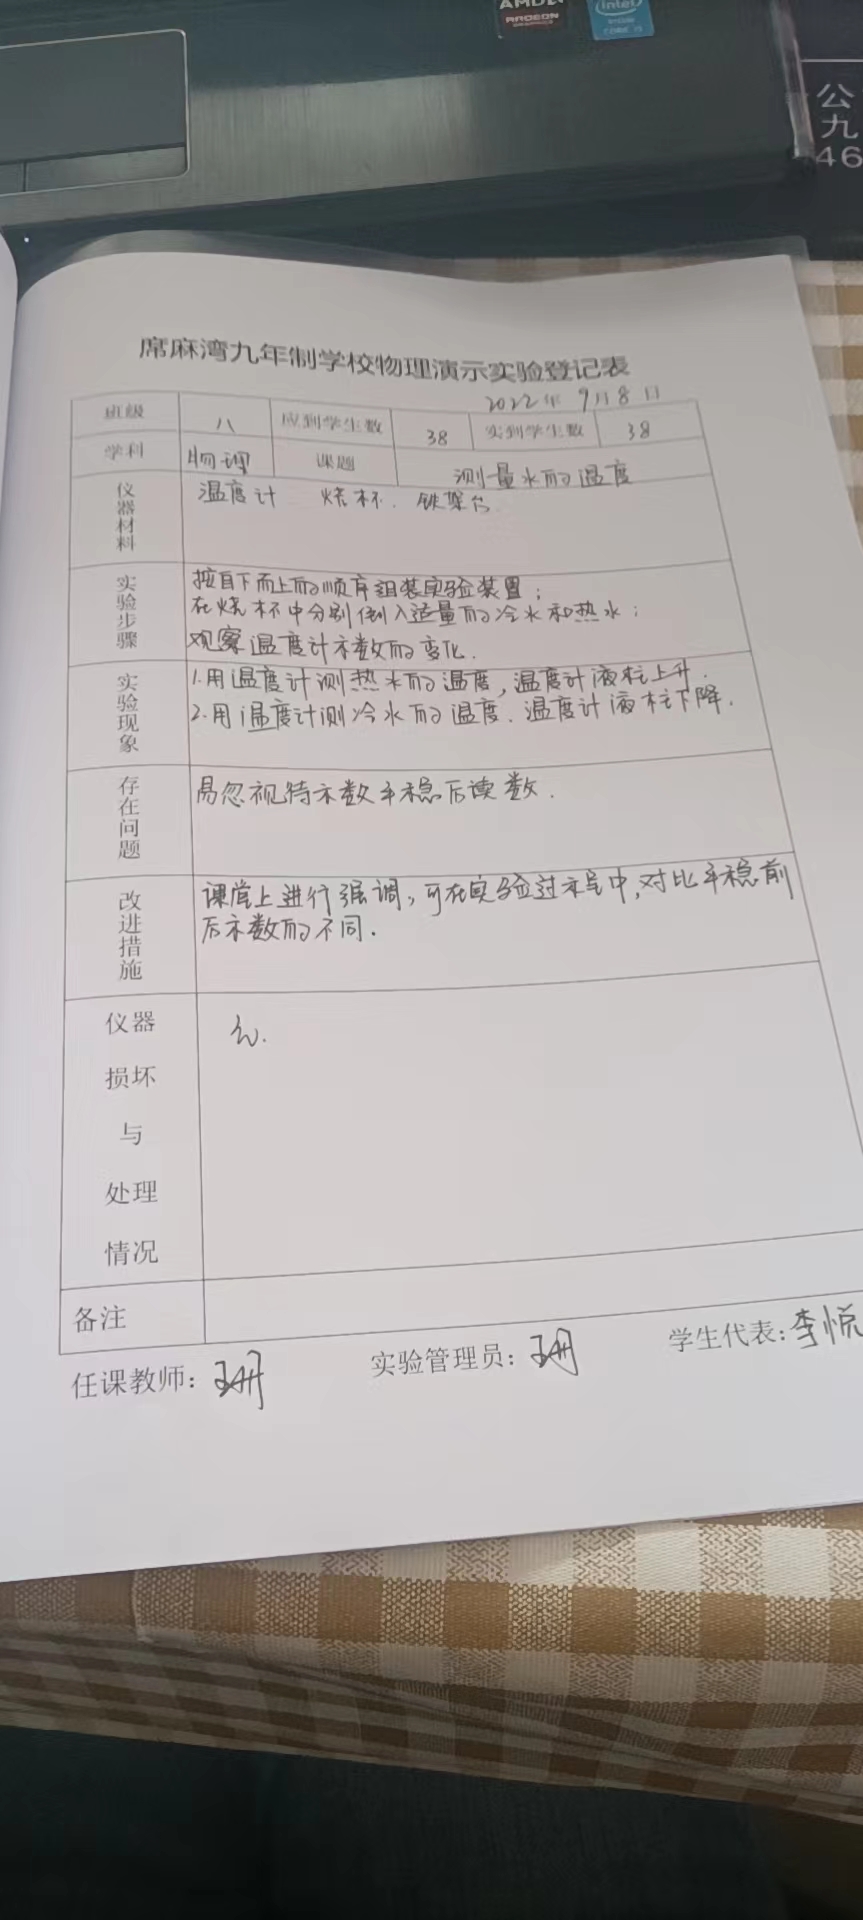 AMD
RADEON
intel
公
九
46
席麻湾九年制学校物理演示实验登记表
2022年 9月8日
班级 八 应到学生数 38 实到学生数 38
学科 物理 课题 测量水的温度
仪器材料 温度计 烧杯. 铁架台
实验步骤
按自下而上的顺序组装实验装置;
在烧杯中分别倒入适量的冷水和热水;
观察温度计示数的变化.
实验现象
1.用温度计测热水的温度,温度计液柱上升.
2.用温度计测冷水的温度.温度计液柱下降.
存在问题
易忽视待示数平稳后读数.
改进措施
课堂上进行强调,可在实验过程中,对比平稳前
后示数的不同.
仪器
损坏
与
处理
情况
无.
备注
任课教师: 实验管理员: 学生代表:李悦